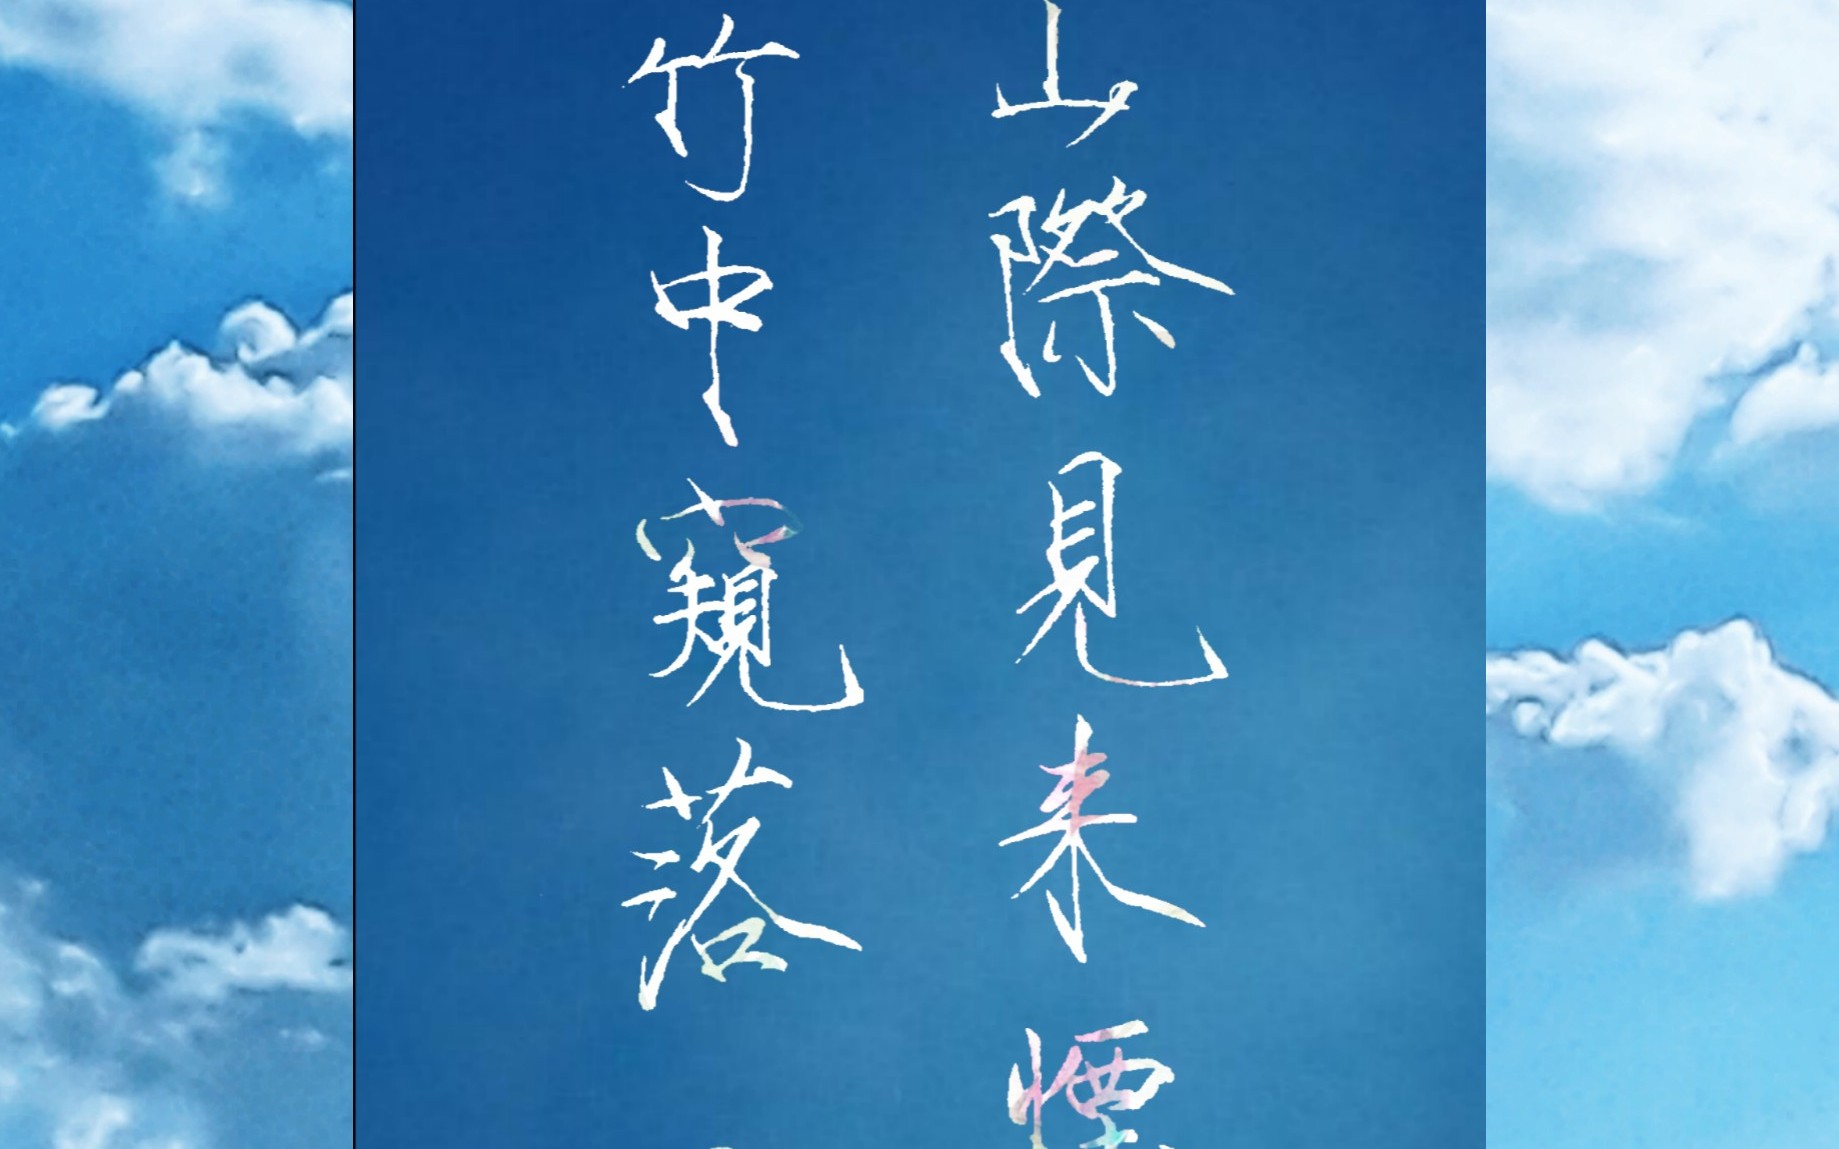 山際見来煙
竹中窺落